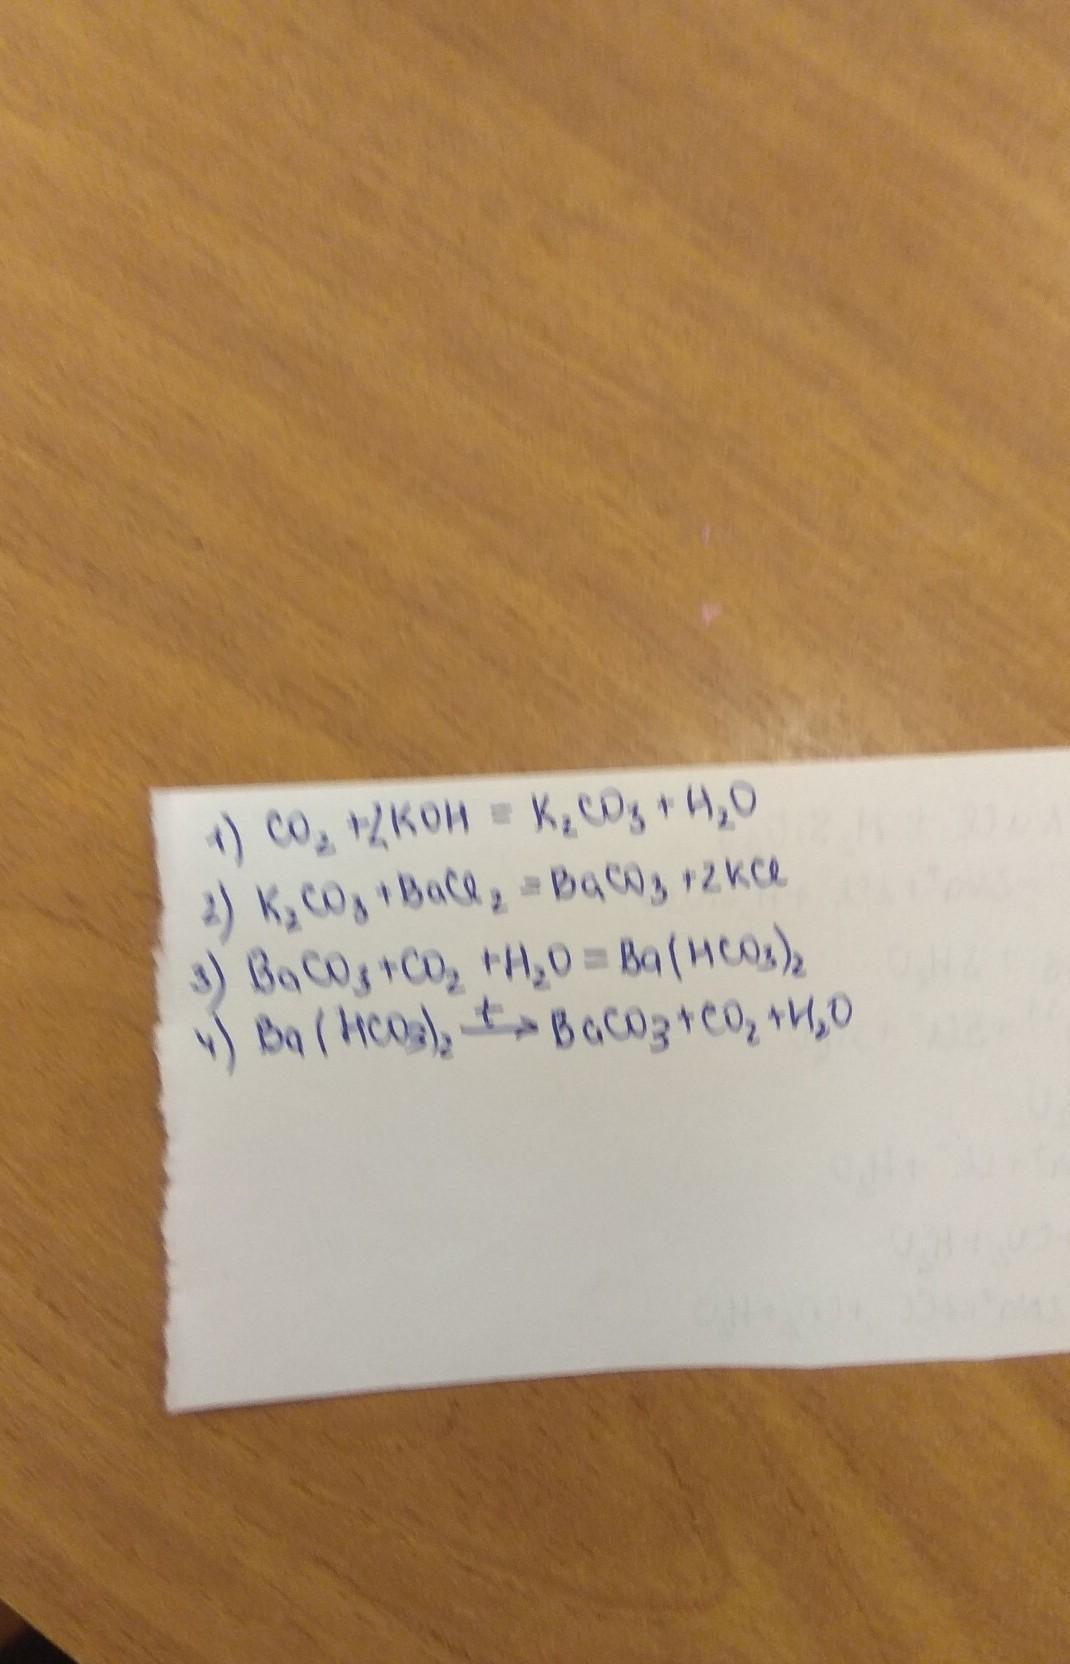 1) CO₂ + 2KOH = K₂CO₃ + H₂O
2) K₂CO₃ + BaCl₂ = BaCO₃ + 2KCl
3) BaCO₃ + CO₂ + H₂O = Ba(HCO₃)₂
4) Ba(HCO₃)₂ t→ BaCO₃ + CO₂ + H₂O